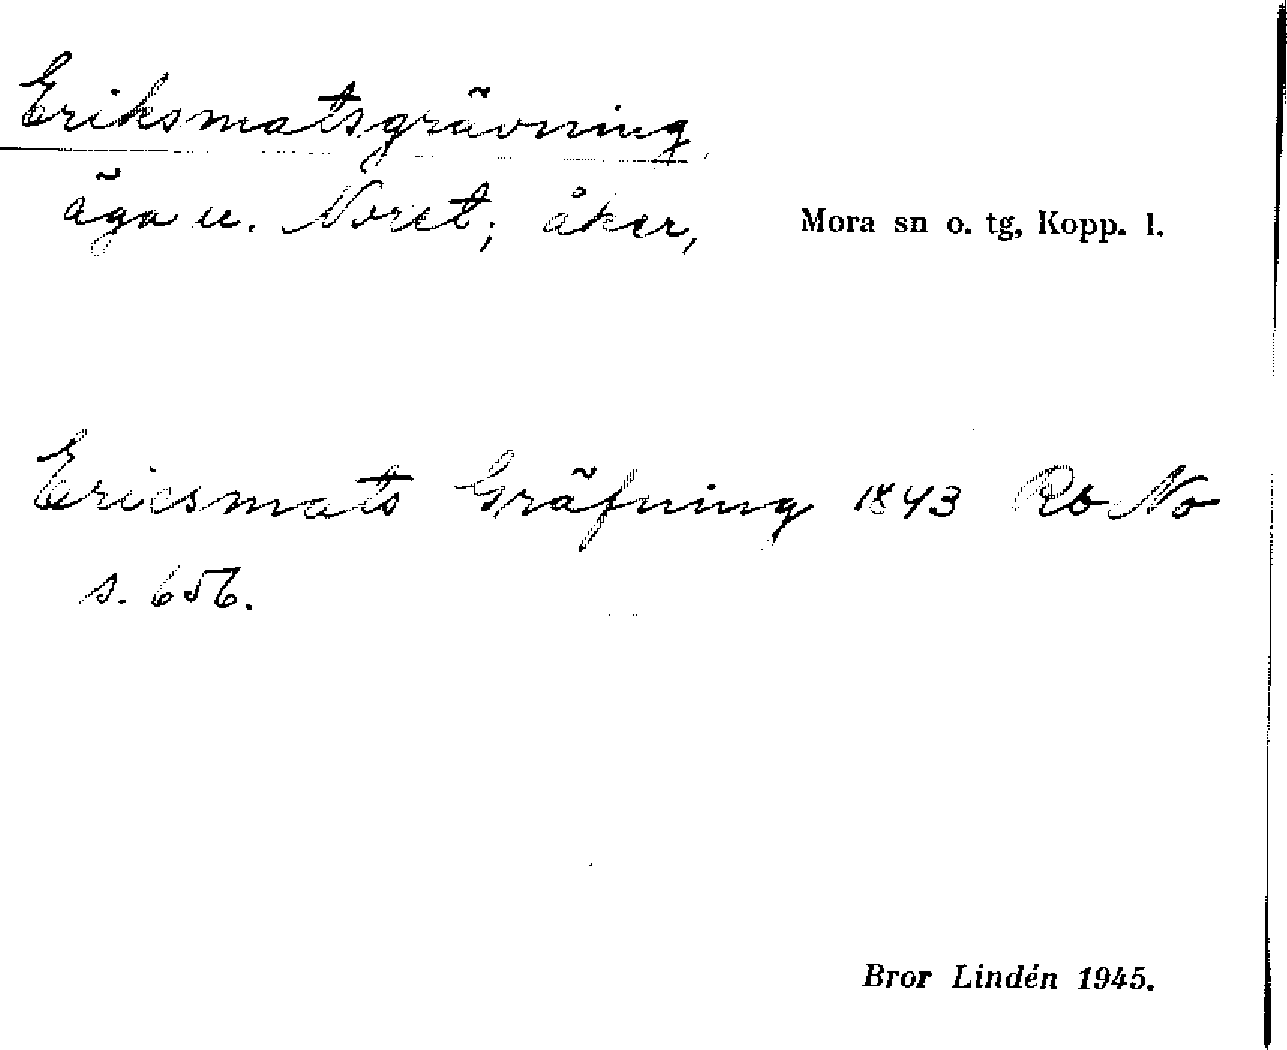 Eriksmatsgrävning
äga u. Noret; åker,
Mora sn o. tg, Kopp. l.
Ericsmats Gräfning 1843 Rb No
s. 656.
Bror Lindén 1945.